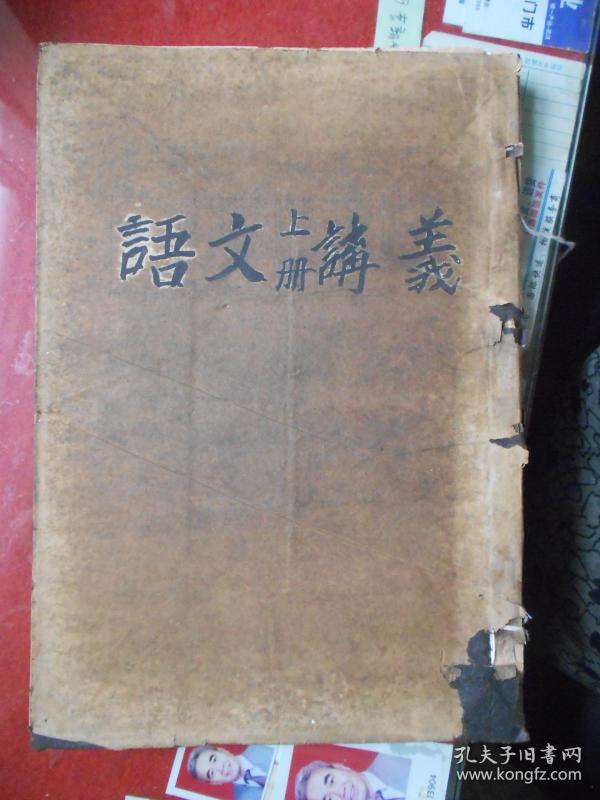 語文上册講義
门市
孔夫子旧书网
www.kongfz.com